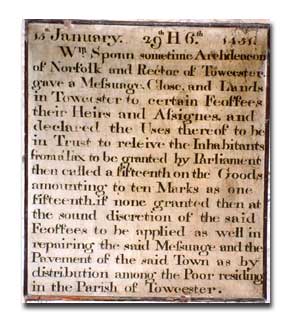 15th January. 29th H 6th. 1451.
Wm Sponn sometime Archdeacon
of Norfolk and Rector of Towcester,
gave a Meſsuage, Cloſe, and Lands
in Towcester to certain Feoffees
their Heirs and Aſsignes, and
declared the Uses thereof to be
in Trust to releive the Inhabitants
from a Tax to be granted by Parliament
then called a fifteenth on the Goods
amounting to ten Marks as one
fifteenth, if none granted then at
the sound discretion of the said
Feoffees to be applied as well in
repairing the said Meſsuage and the
Pavement of the said Town as by
distribution among the Poor residing
in the Parish of Towcester.